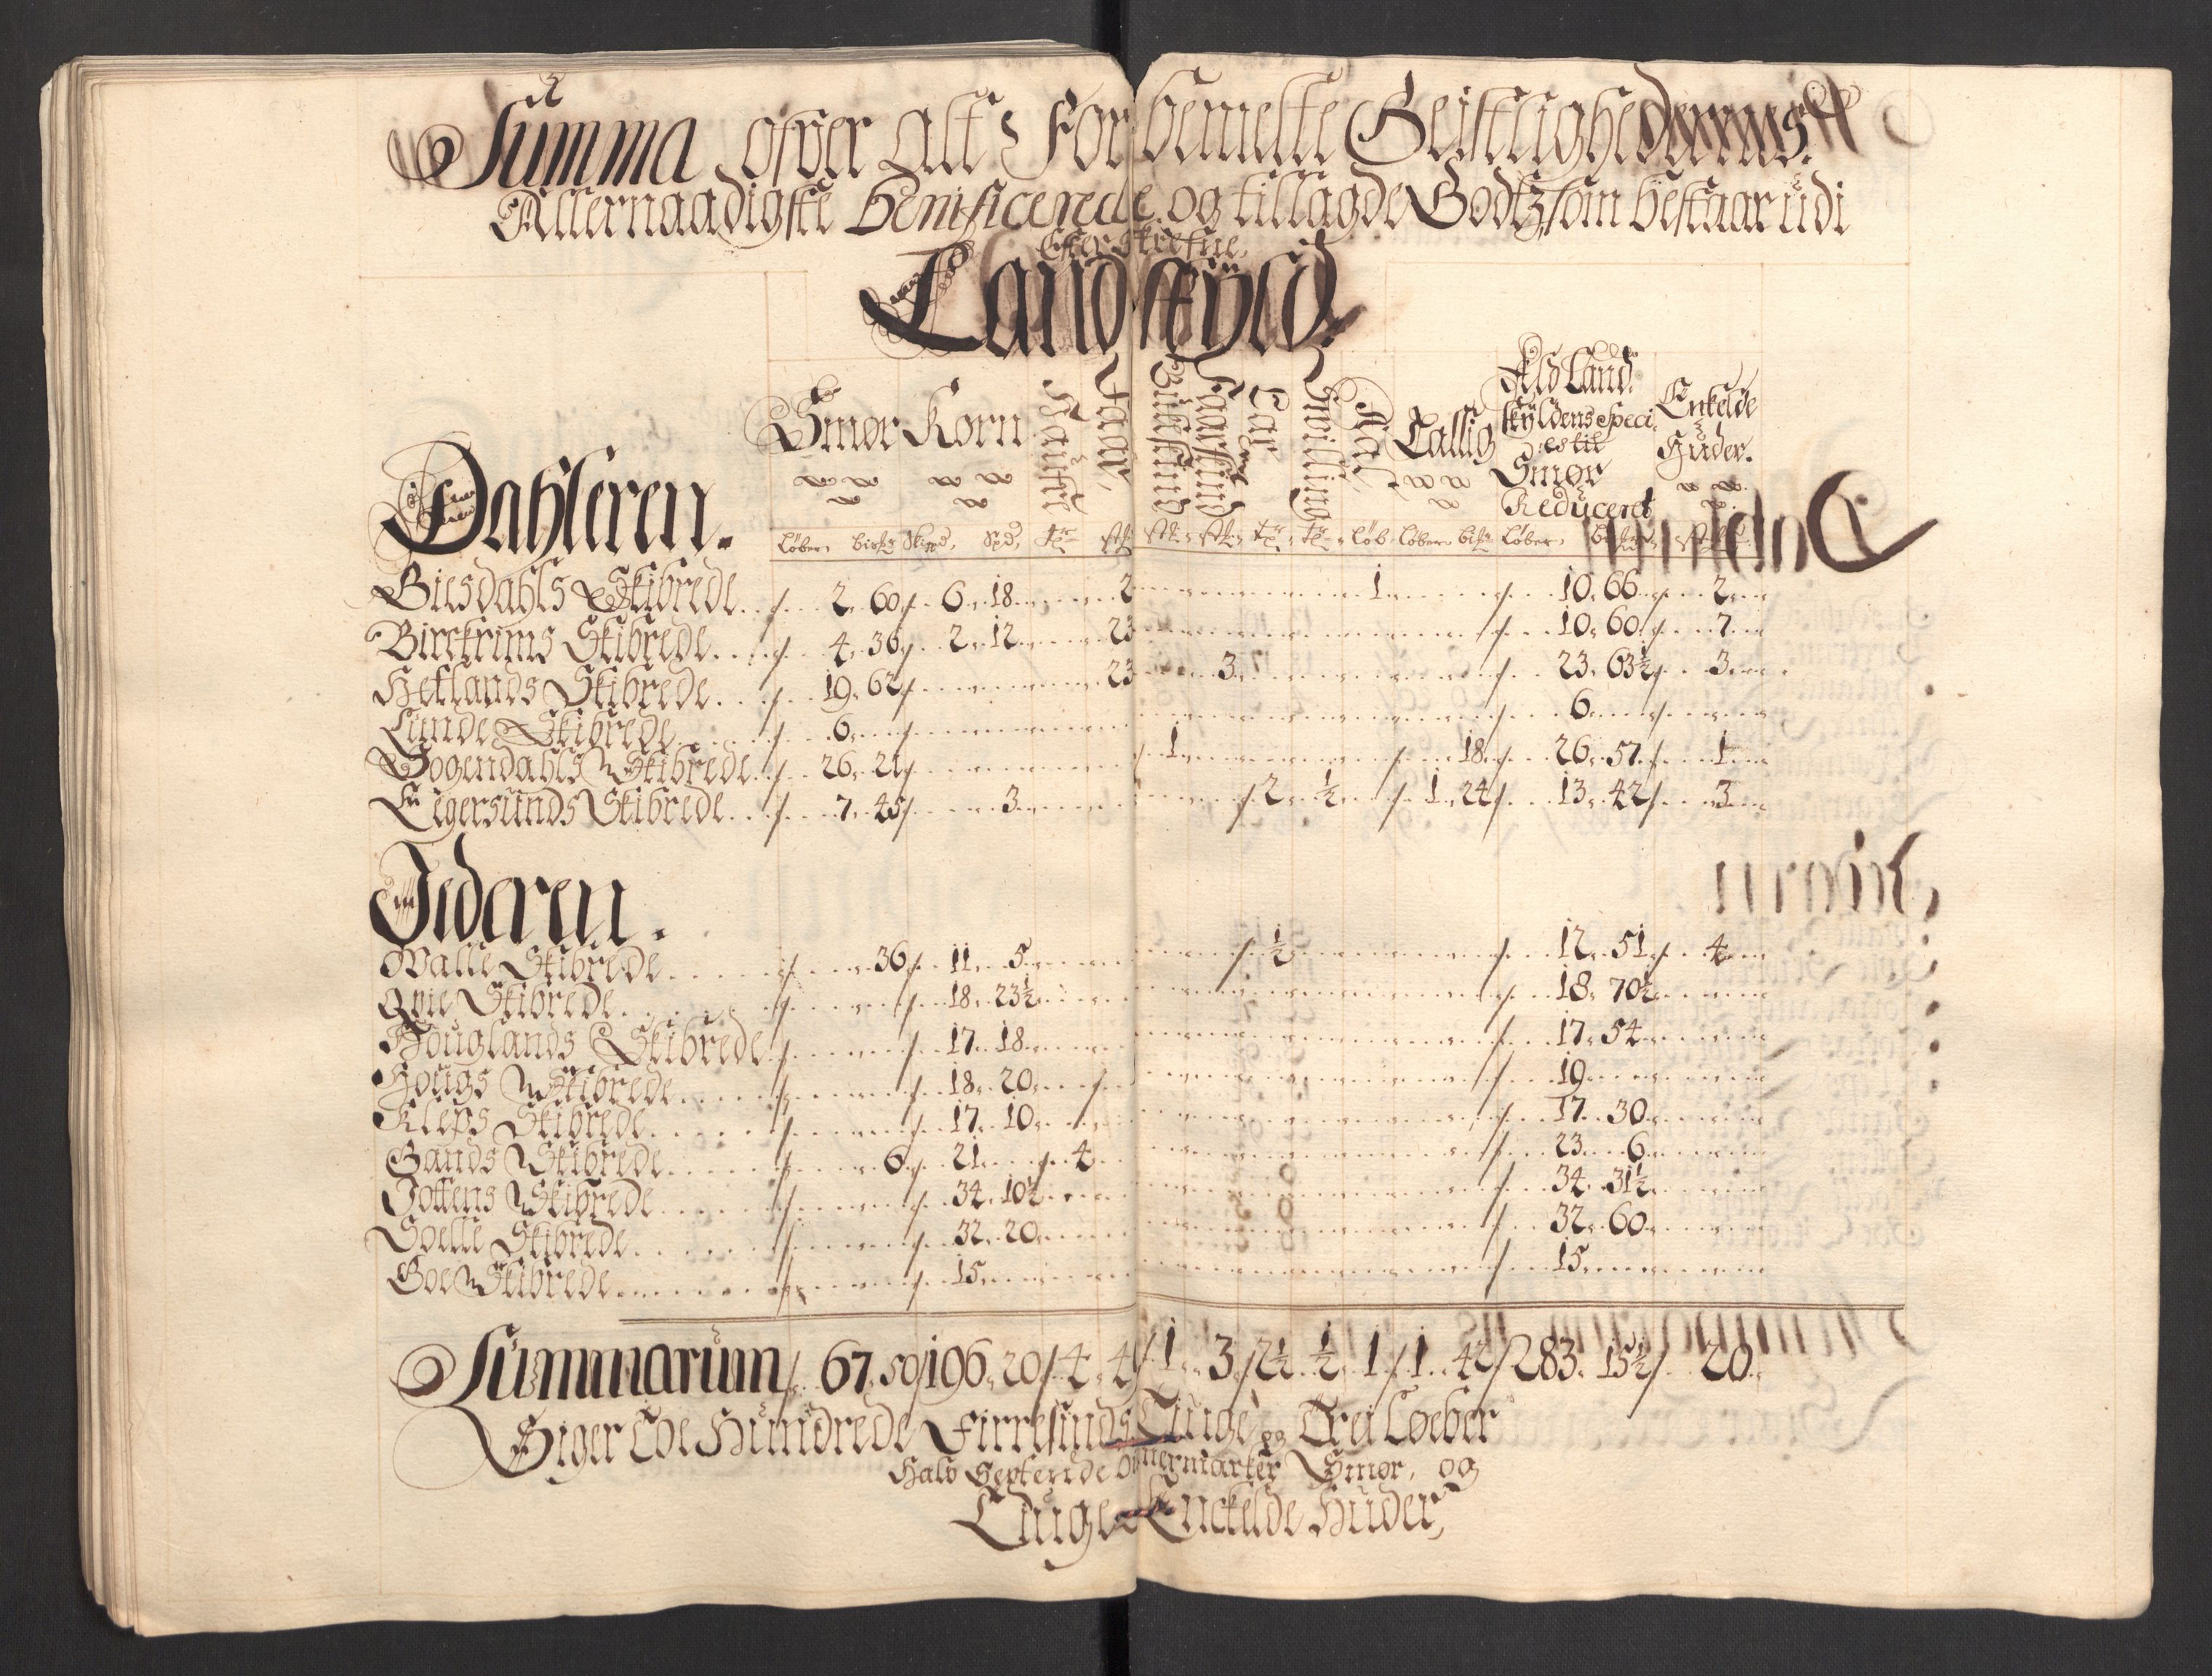 Summa ofver alt Forbemelte Geistlighedernes
Allernaadigste Benificerede og tillagde Godtz som bestaar udi
Efterskrefne
Landskyld.
Smør Korn Houder Faar Bukskind Faarskind Tar Salt Tallig Ald Landskyldens Species til Smør Reduceret Enkelde Huder.
Dahleren.
Løber, bisk Skipd, Spd, løb Løber bisk Løber,
Giesdahls Skibrede 2. 60 6. 18 2 1 10. 66 2
Birckrims Skibrede 4. 36 2. 12 23 10. 60 7
Hetlands Skibrede 19. 62 23 3 23. 63½ 3
Lunde Skibrede 6 6
Sogendahls Skibrede 26. 21 1 18 26. 57 1
Eigersunds Skibrede 7. 45 3 2 ½ 1. 24 13. 42 3
Jederen.
Walle Skibrede 36 11. 5 ½ 12. 51 4
Qvie Skibrede 18. 23½ 18. 70½
Houglands Skibrede 17. 18 17. 54
Hougs Skibrede 18. 20 19
Kleps Skibrede 17. 10 17. 30
Gands Skibrede 6 21 4 23. 6
Jottens Skibrede 34. 10½ 34. 31½
Soelle Skibrede 32. 20 32. 60
Goe Skibrede 15 15
Summarum 67. 50 196. 20 4. 4 1 3 2½ ½ 1 1. 42 283. 15½ 20
Siger Toe Hundrede Firresinds Tiuge og Trei Løeber
Halv Sextende Smør, og
Tiuge Enckelde Huder,